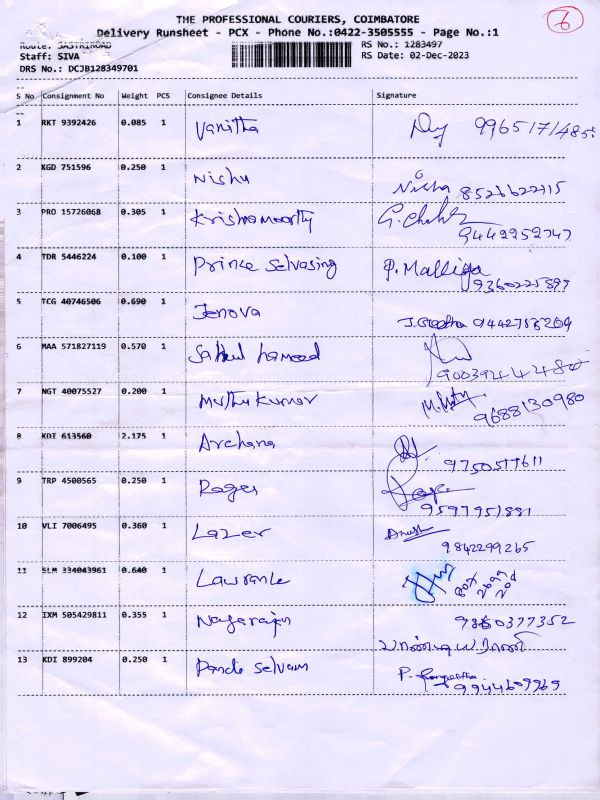 6
THE PROFESSIONAL COURIERS, COIMBATORE
Delivery Runsheet - PCX - Phone No.:0422-3505555 - Page No.:1
Route: SASTRIROAD
RS No.: 1283497
Staff: SIVA
RS Date: 02-Dec-2023
DRS No.: DCJB128349701
S No Consignment No Weight PCS Consignee Details Signature
1 RKT 9392426 0.085 1 Vanitha
2 KGD 751596 0.250 1 Nishu Nisha 8526622115
3 PRO 15726068 0.305 1 Krishnamoorthy 9442952747
4 TDR 5446224 0.100 1 Prince Selvasing P. Malliga
5 TCG 40746506 0.690 1 Jenova J. Geetha
6 MAA 571827119 0.570 1 Sahul hameed
7 NGT 40075527 0.200 1 Muthu kumar 9688130980
8 KDI 613560 2.175 1 Archana
9 TRP 4500565 0.250 1 9597951881
10 VLI 7006495 0.360 1 Lazer 9842299265
11 SLM 334043961 0.640 1 Lawrance
12 IXM 505429811 0.355 1 Nagarajan 9360377352
13 KDI 899204 0.250 1 9944609969